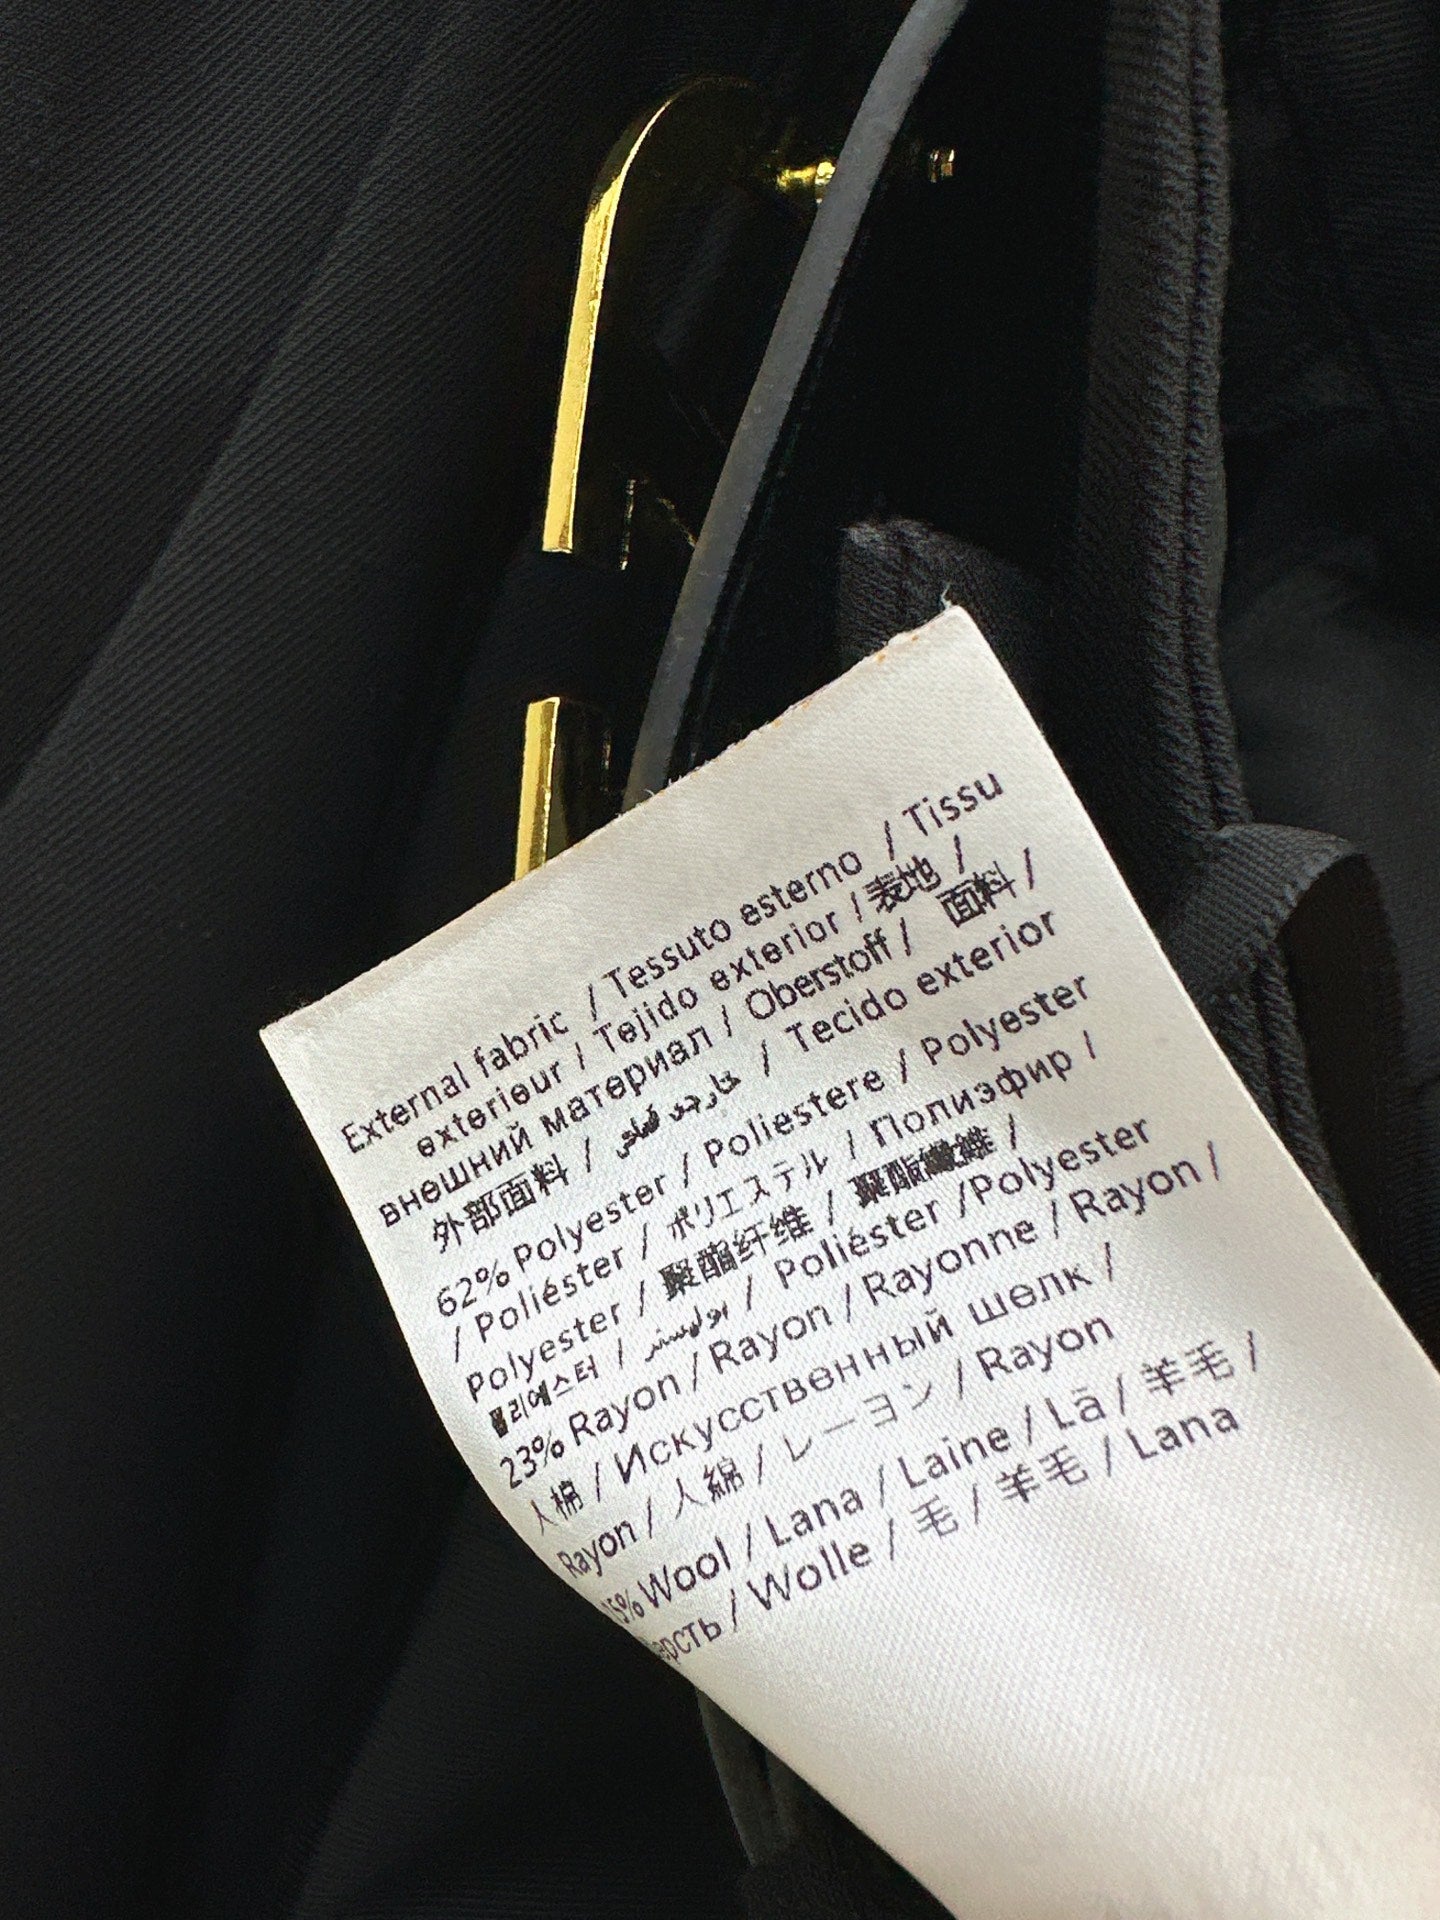 External fabric / Tessuto esterno / Tissu
exterieur / Tejido exterior / 表地 /
внешний материал / Oberstoff / 面料 /
外部面料 / / Tecido exterior
62% Polyester / Poliestere / Polyester
/ Poliéster / ポリエステル / Полиэфир /
Polyester / 聚酯纤维 / 聚酯纖維 /
폴리에스터 / بوليستر / Poliéster /Polyester
23% Rayon / Rayon / Rayonne / Rayon /
人棉 / Искусственный шелк /
Rayon / 人綿 / レーヨン / Rayon
15% Wool / Lana / Laine / Lã / 羊毛 /
/ Wolle / 毛 / 羊毛 / Lana